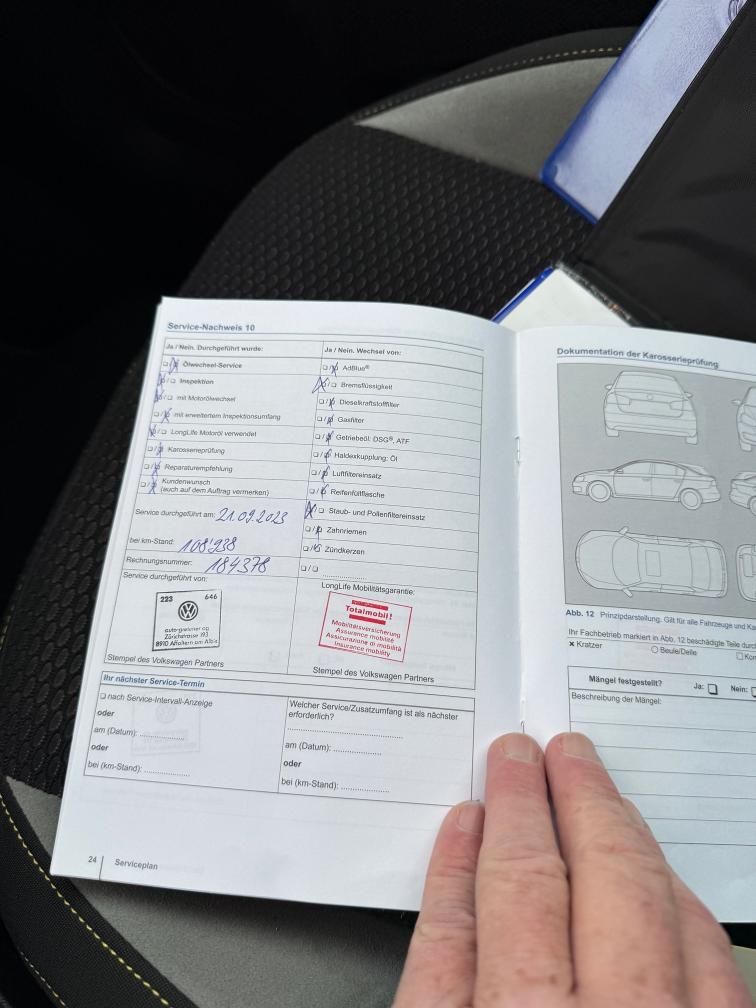 Service-Nachweis 10
Ja / Nein. Durchgeführt wurde:
Ölwechsel-Service
Inspektion
mit Motorölwechsel
mit erweitertem Inspektionsumfang
LongLife Motoröl verwendet
Karosserieprüfung
Reparaturempfehlung
Kundenwunsch
(auch auf dem Auftrag vermerken)
Service durchgeführt am: 21.09.2023
bei km-Stand: 108'938
Rechnungsnummer: 184378
Service durchgeführt von:
223 646
auto-greismer ag
Zürichstrasse 193
8910 Affoltern am Albis
Stempel des Volkswagen Partners
Ja / Nein. Wechsel von:
AdBlue®
Bremsflüssigkeit
Dieselkraftstofffilter
Gasfilter
Getriebeöl: DSG®, ATF
Haldexkupplung: Öl
Luftfiltereinsatz
Reifenfüllflasche
Staub- und Pollenfiltereinsatz
Zahnriemen
Zündkerzen
LongLife Mobilitätsgarantie:
Totalmobil!
Mobilitätsversicherung
Assurance mobilité
Assicurazione di mobilità
Insurance mobility
Stempel des Volkswagen Partners
Ihr nächster Service-Termin
nach Service-Intervall-Anzeige
oder
am (Datum):
oder
bei (km-Stand):
Welcher Service/Zusatzumfang ist als nächster
erforderlich?
am (Datum):
oder
bei (km-Stand):
24 Serviceplan
Dokumentation der Karosserieprüfung
Abb. 12 Prinzipdarstellung. Gilt für alle Fahrzeuge und
Ihr Fachbetrieb markiert in Abb. 12 beschädigte Teile
x Kratzer Beule/Delle
Mängel festgestellt? Ja: Nein:
Beschreibung der Mängel: